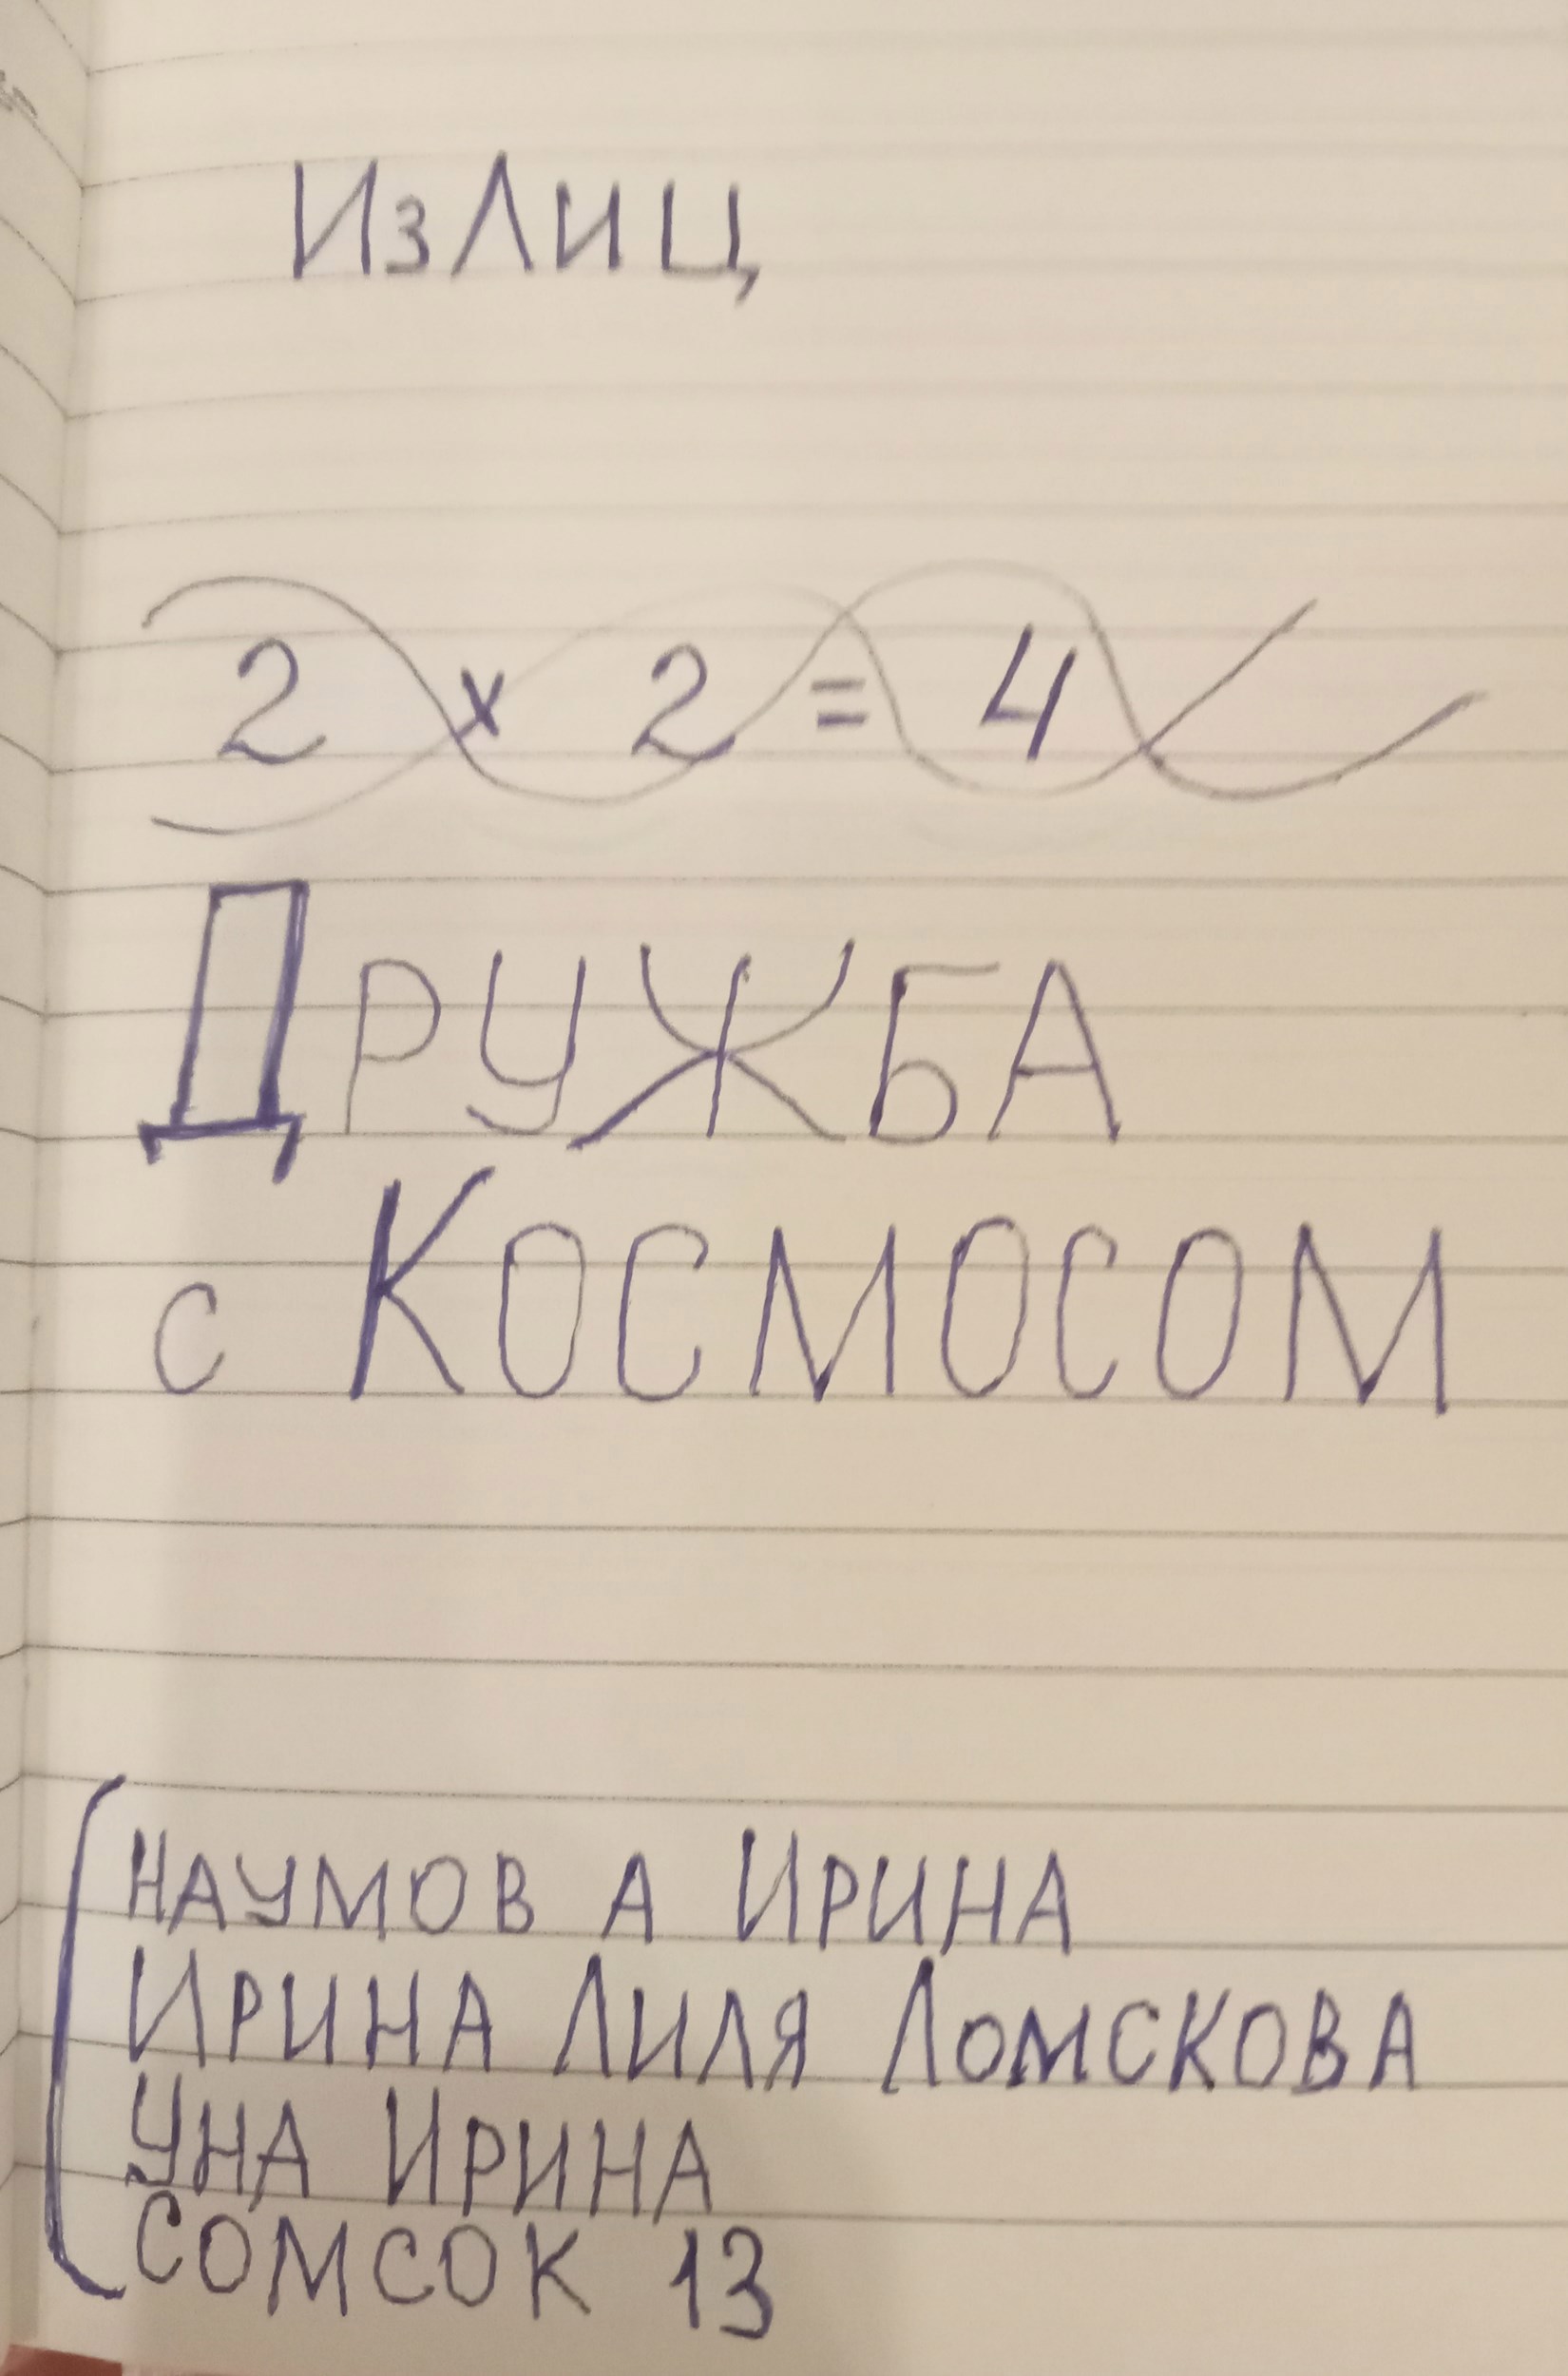 ИзЛИЦ
2 x 2 = 4
ДРУЖБА
с КОСМОСОМ
НАУМОВ А ИРИНА
ИРИНА ЛИЛЯ ЛОМСКОВА
УНА ИРИНА
СОМСОК 13